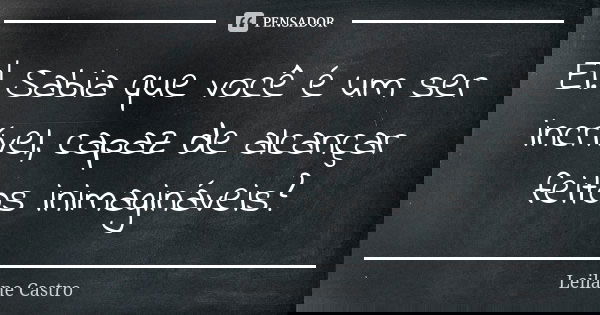 PENSADOR
Ei! Sabia que você é um ser
incrível, capaz de alcançar
feitos inimagináveis?
Leilane Castro